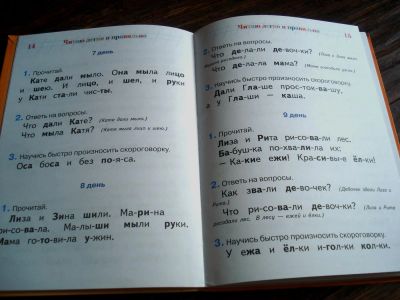 14 Читаю легко и правильно
7 день
1. Прочитай.
Кате дали мыло. Она мыла лицо
и шею. И лицо, и шея, и руки
у Кати ста-ли чис-ты.
2. Ответь на вопросы.
Что дали Кате? (Кате дали мыло.)
Что мыла Катя? (Катя мыла лицо и шею.)
3. Научись быстро произносить скороговорку.
Оса боса и без по-я-са.
8 день
1. Прочитай.
Лиза и Зина шили. Ма-ри-на
ри-со-ва-ла. Ма-лы-ши мыли руки.
Мама го-то-ви-ла у-жин.
Читаю легко и правильно 15
2. Ответь на вопросы.
Что де-ла-ли де-воч-ки?
Что де-ла-ла мама?
3. Научись быстро произносить скороговорку.
Дали Гла-ше прос-ток-ва-шу,
а у Гла-ши — каша.
9 день
1. Прочитай.
Лиза и Рита ри-со-ва-ли лес.
Ба-буш-ка по-хва-ли-ла их:
— Ка-кие ежи! Кра-си-вы-е ёл-ки!
2. Ответь на вопросы.
Как зва-ли де-во-чек? (Девочек звали Лиза и
Рита.)
Что ри-со-ва-ли де-воч-ки? (Лиза и Рита
рисовали лес. В лесу — ежи и ёлки.)
3. Научись быстро произносить скороговорку.
У ежа и ёл-ки и-гол-ки кол-ки.